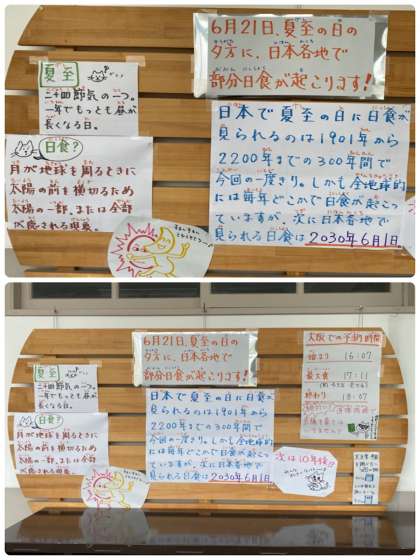 6月21日、夏至の日の
夕方に、日本各地で
部分日食が起こります!
夏至
二十四節気の一つ。
一年でもっとも昼が
長くなる日。
日食?
月が地球を周るときに
太陽の前を横切るため
太陽の一部、または全部
が隠される現象。
日本で夏至の日に日食が
見られるのは1901年から
2200年までの300年間で
今回の一度きり。しかも全地球的
には毎年どこかで日食が起こっ
ていますが、次に日本各地で
見られる日食は2030年6月1日。
6月21日、夏至の日の
夕方に、日本各地で
部分日食が起こります!
夏至
二十四節気の一つ。
一年でもっとも昼が
長くなる日。
日食?
月が地球を周るときに
太陽の前を横切るため
太陽の一部、または全部
が隠される現象。
日本で夏至の日に日食が
見られるのは1901年から
2200年までの300年間で
今回の一度きり。しかも全地球的
には毎年どこかで日食が起こっ
ていますが、次に日本各地で
見られる日食は2030年6月1日。
大阪での予測時間
始まり 16:07
最大食 17:11
終わり 18:07
次は10年後!!